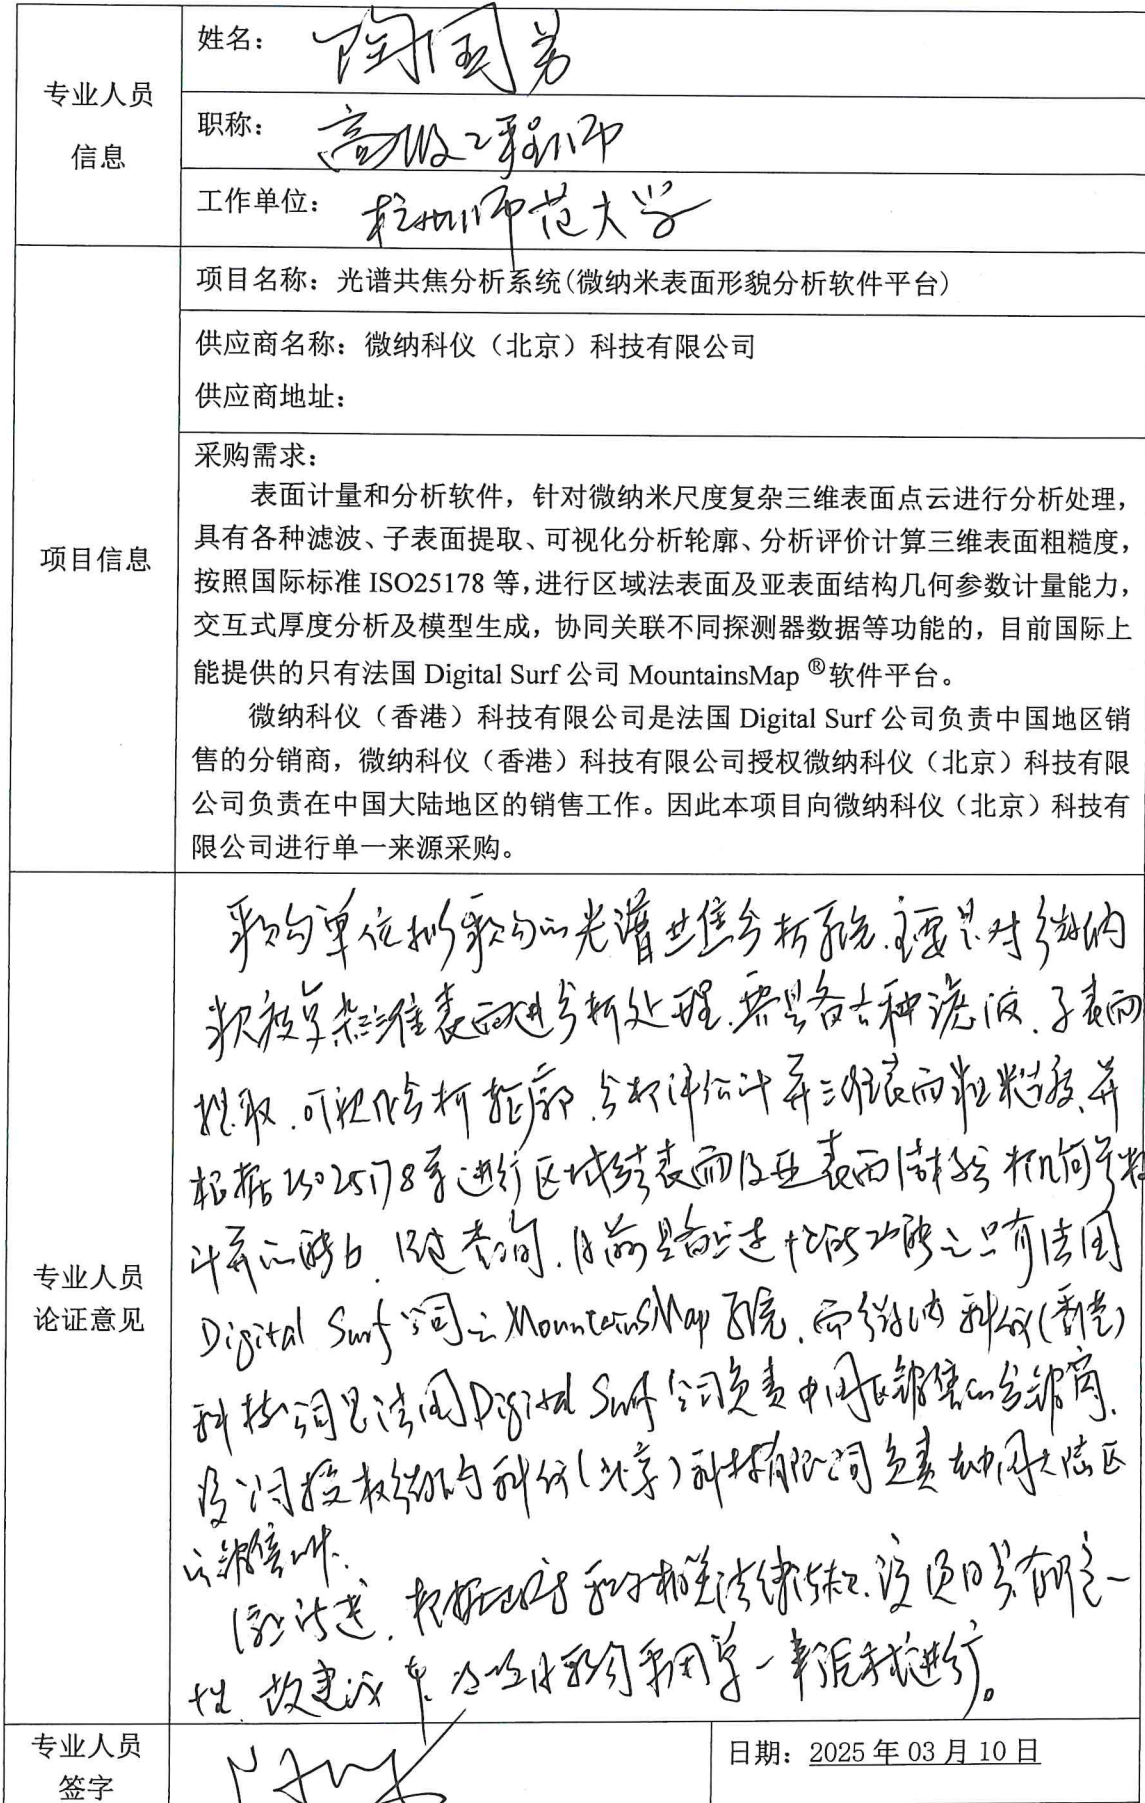 专业人员
信息
姓名：陶国芳
职称：高级工程师
工作单位：杭州师范大学
项目信息
项目名称：光谱共焦分析系统(微纳米表面形貌分析软件平台)
供应商名称：微纳科仪（北京）科技有限公司
供应商地址：
采购需求：
表面计量和分析软件，针对微纳米尺度复杂三维表面点云进行分析处理，
具有各种滤波、子表面提取、可视化分析轮廓、分析评价计算三维表面粗糙度，
按照国际标准 ISO25178 等，进行区域法表面及亚表面结构几何参数计量能力，
交互式厚度分析及模型生成，协同关联不同探测器数据等功能的，目前国际上
能提供的只有法国 Digital Surf 公司 MountainsMap ®软件平台。
微纳科仪（香港）科技有限公司是法国 Digital Surf 公司负责中国地区销
售的分销商，微纳科仪（香港）科技有限公司授权微纳科仪（北京）科技有限
公司负责在中国大陆地区的销售工作。因此本项目向微纳科仪（北京）科技有
限公司进行单一来源采购。
专业人员
论证意见
采购单位拟采购的光谱共焦分析系统，主要是对微纳
米级复杂三维表面进分析处理，需具备各种滤波、子表面
提取、可视化分析轮廓、分析评价计算三维表面粗糙度，并
根据ISO25178等进行区域表面及亚表面结构分析几何参数
计算的能力，经过查询，目前具备上述性能功能的只有法国
Digital Surf 公司的MountainsMap系统，而微纳科仪(香港)
科技公司是法国Digital Surf公司负责中国区销售的分销商，
该公司授权微纳科仪(北京)科技有限公司负责在中国大陆区
的销售工作。
综上所述，根据政府采购相关法律法规，该项目具有唯一
性，故建议采用单一来源方式进行。
专业人员
签字
日期：2025 年 03 月 10 日